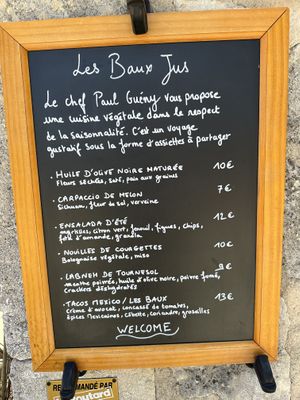 Les Baux Jus
Le chef Paul Guény vous propose
une cuisine végétale dans le respect
de la saisonnalité. C'est un voyage
gustatif sous la forme d'assiettes à partager
• HUILE D'OLIVE NOIRE MATURÉE 10€
Fleurs séchées, sel, pain aux graines
• CARPACCIO DE MELON 7€
Sichuan, fleur de sel, verveine
• ENSALADA D'ÉTÉ 12€
myrtilles, citron vert, fenouil, figues, chips,
d'amande,
• NOUILLES DE COURGETTES 10€
Bolognaise végétale, miso
• LABNEH DE TOURNESOL 9€
menthe poivrée, huile d'olive noire, poivre fumé,
Crackers déshydratés
• TACOS MEXICO / LES BAUX 13€
Crème d'avocat, concassé de tomates,
épices Mexicaines, coriandre, groseilles
WELCOME
RECOMMANDÉ PAR
routard